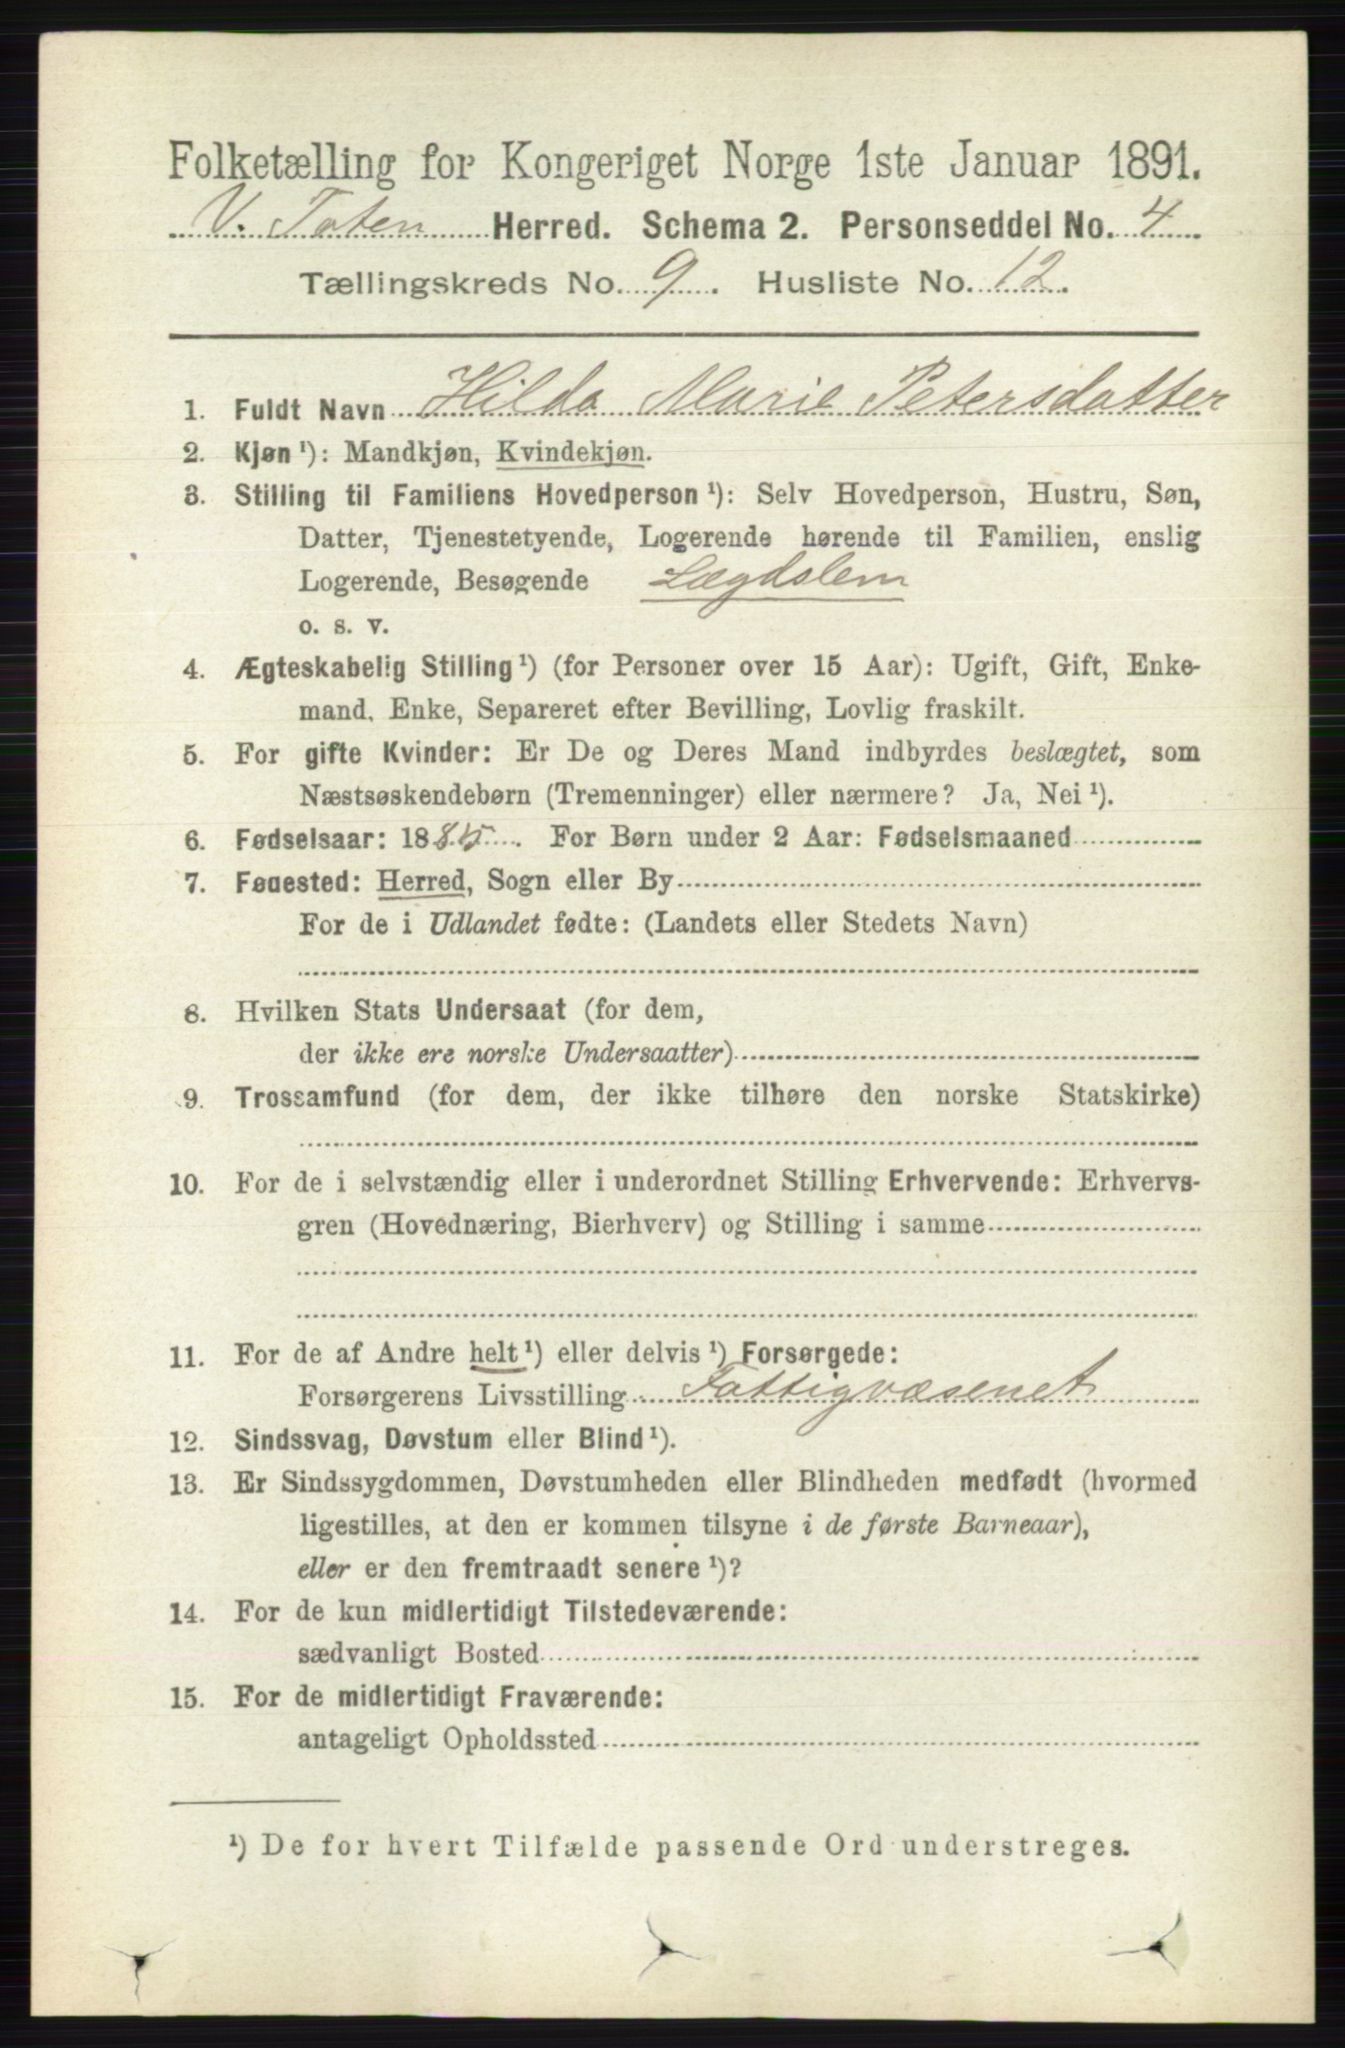 Folketælling for Kongeriget Norge 1ste Januar 1891.
V. Toten Herred. Schema 2. Personseddel No. 4
Tællingskreds No. 9. Husliste No. 12.
1. Fuldt Navn Hilda Marie Petersdatter
2. Kjøn ¹): Mandkjøn, Kvindekjøn.
3. Stilling til Familiens Hovedperson ¹): Selv Hovedperson, Hustru, Søn,
Datter, Tjenestetyende, Logerende hørende til Familien, enslig
Logerende, Besøgende Lægdslem
o. s. v.
4. Ægteskabelig Stilling ¹) (for Personer over 15 Aar): Ugift, Gift, Enke-
mand, Enke, Separeret efter Bevilling, Lovlig fraskilt.
5. For gifte Kvinder: Er De og Deres Mand indbyrdes beslægtet, som
Næstsøskendebørn (Tremenninger) eller nærmere? Ja, Nei ¹).
6. Fødselsaar: 1885. For Børn under 2 Aar: Fødselsmaaned
7. Fødested: Herred, Sogn eller By
For de i Udlandet fødte: (Landets eller Stedets Navn)
8. Hvilken Stats Undersaat (for dem,
der ikke ere norske Undersaatter)
9. Trossamfund (for dem, der ikke tilhøre den norske Statskirke)
10. For de i selvstændig eller i underordnet Stilling Erhvervende: Erhvervs-
gren (Hovednæring, Bierhverv) og Stilling i samme
11. For de af Andre helt ¹) eller delvis ¹) Forsørgede:
Forsørgerens Livsstilling Fattigvæsenet
12. Sindssvag, Døvstum eller Blind ¹).
13. Er Sindssygdommen, Døvstumheden eller Blindheden medfødt (hvormed
ligestilles, at den er kommen tilsyne i de første Barneaar),
eller er den fremtraadt senere ¹)?
14. For de kun midlertidigt Tilstedeværende:
sædvanligt Bosted
15. For de midlertidigt Fraværende:
antageligt Opholdssted
¹) De for hvert Tilfælde passende Ord understreges.